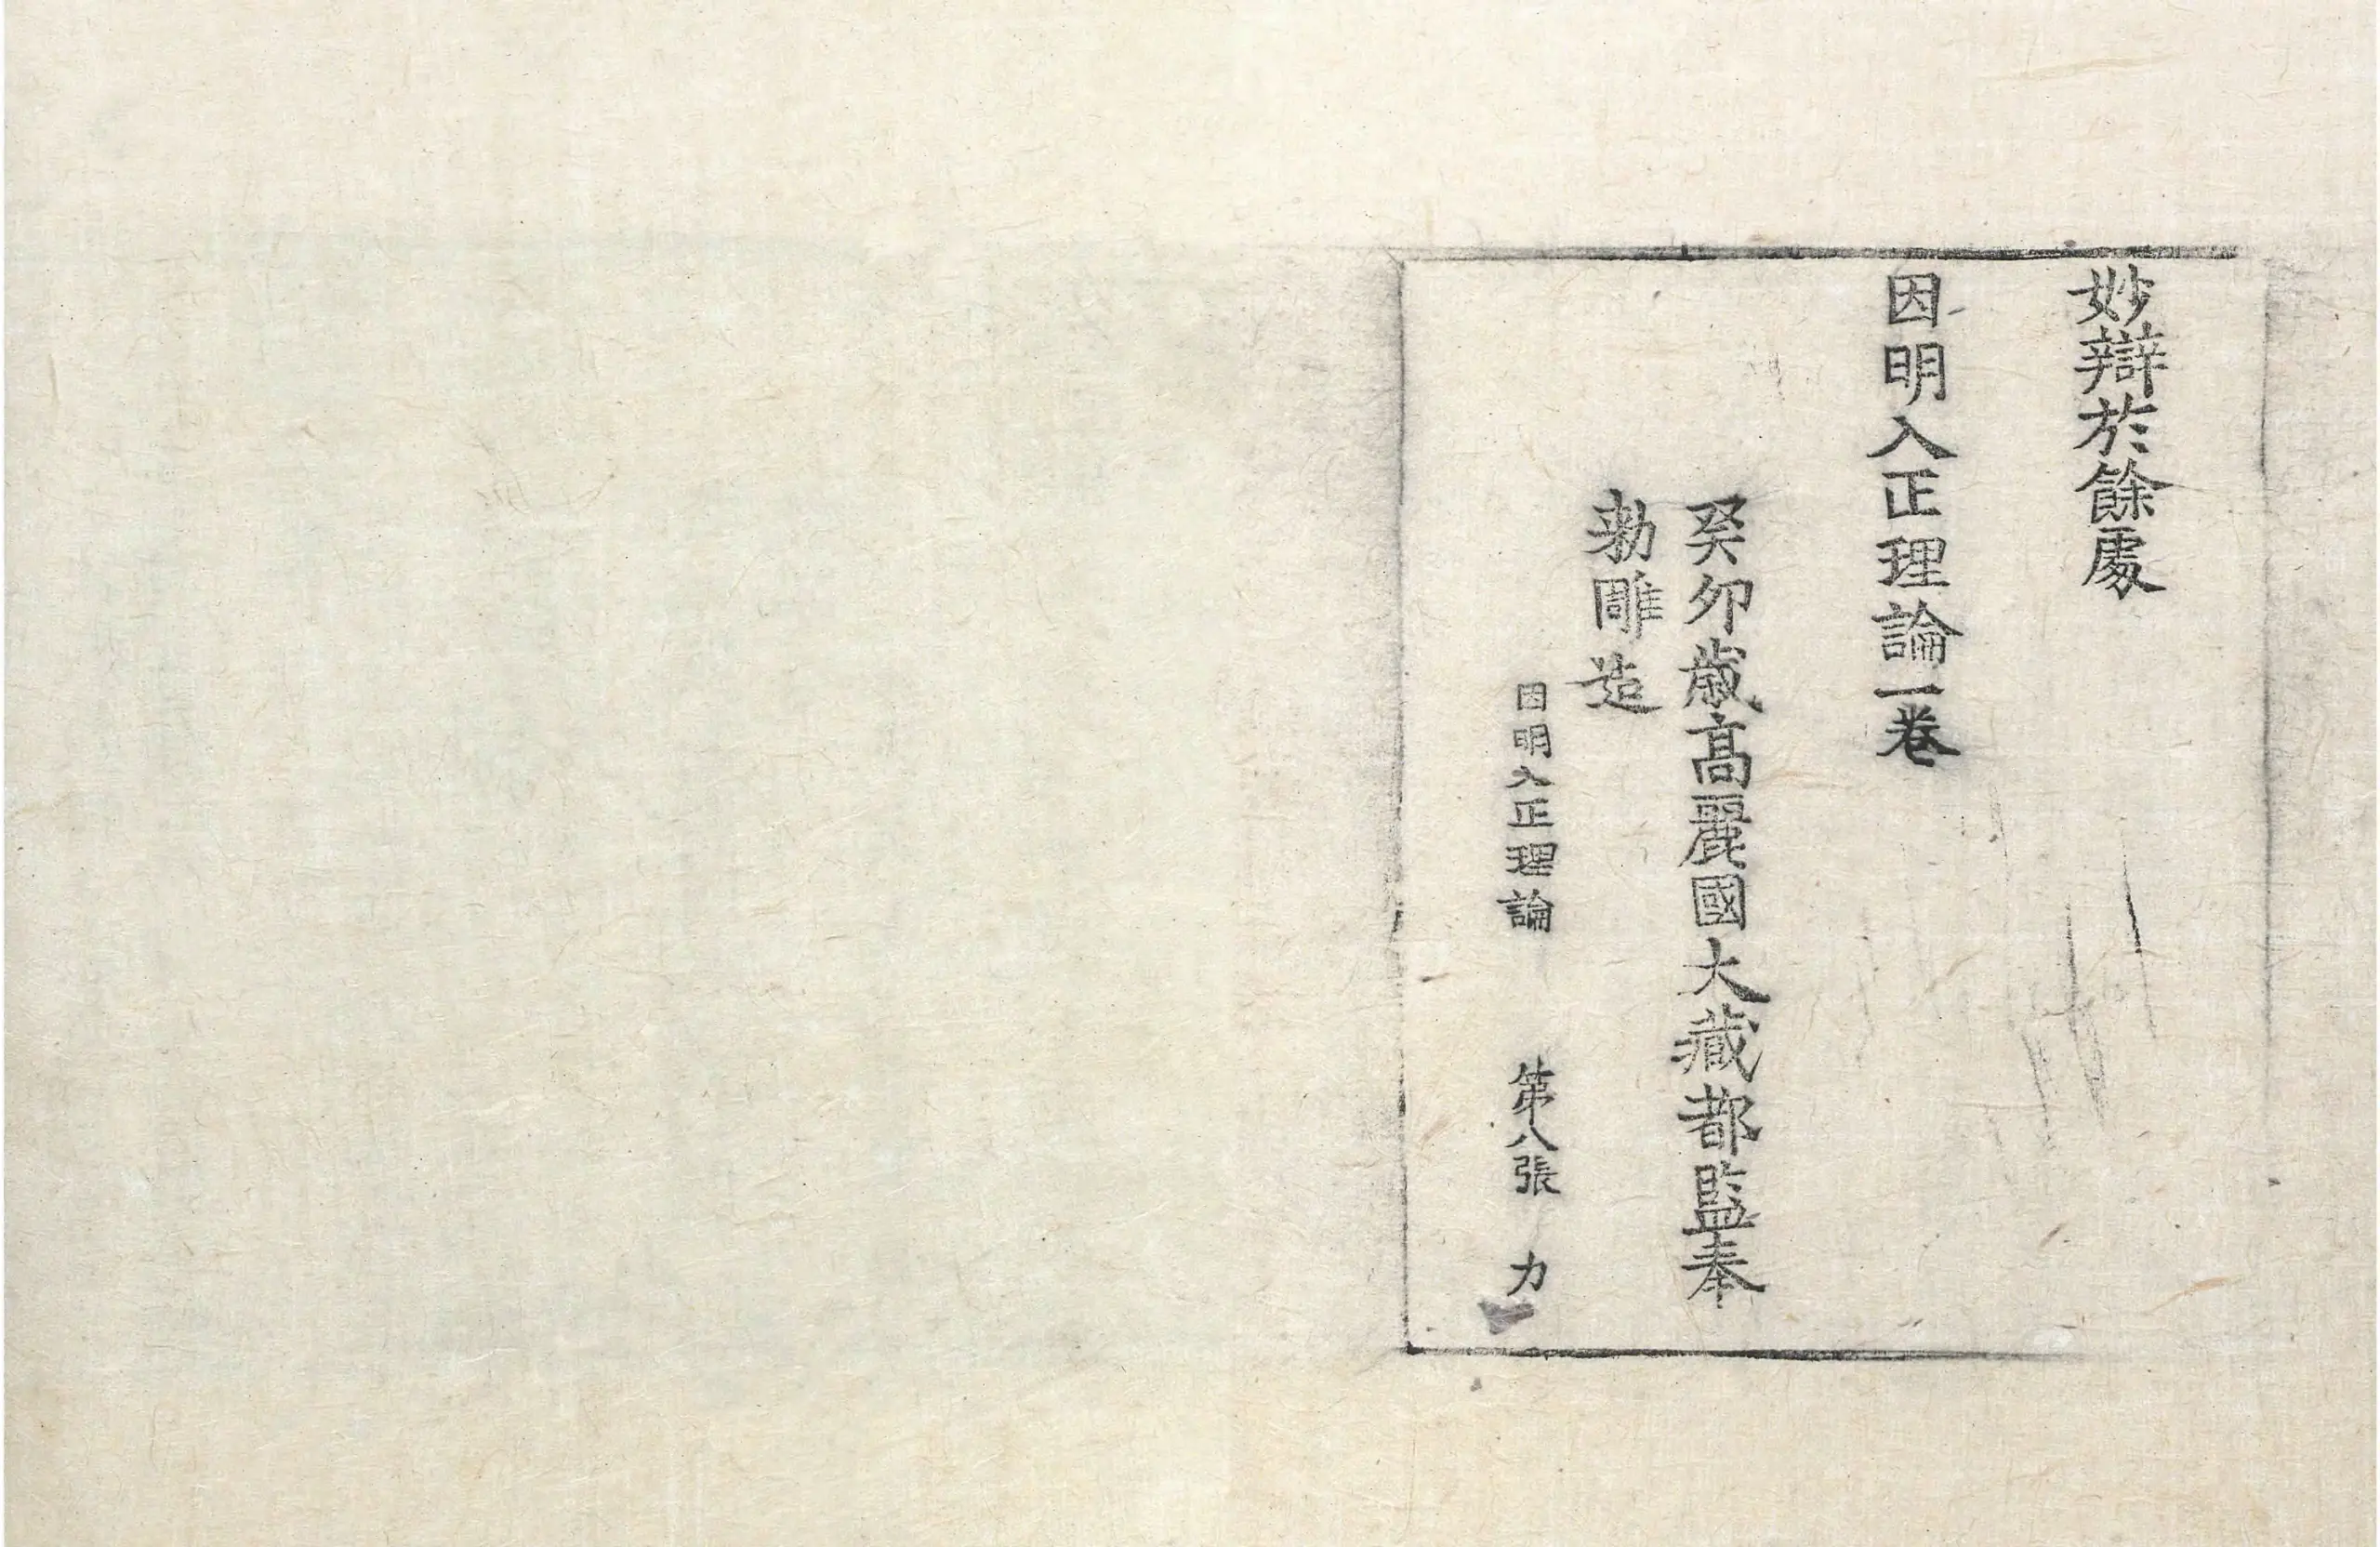 妙辯於餘處
因明入正理論一卷
癸卯歲高麗國大藏都監奉
勅雕造
因明入正理論 第八張 力